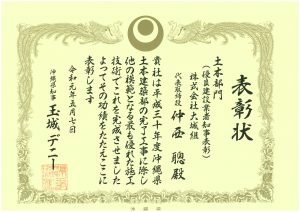 表彰状
土木部門
(優良建設業者知事表彰)
株式会社大城組
代表取締役 仲西 聰殿
貴社は平成三十年度沖縄県
土木建築部の完了工事に際し
他の模範となる最も優れた施工
技術でこれを完成させました
よってその功績をたたえここに
表彰します
令和元年五月七日
沖縄県知事 玉城デニー
沖縄県